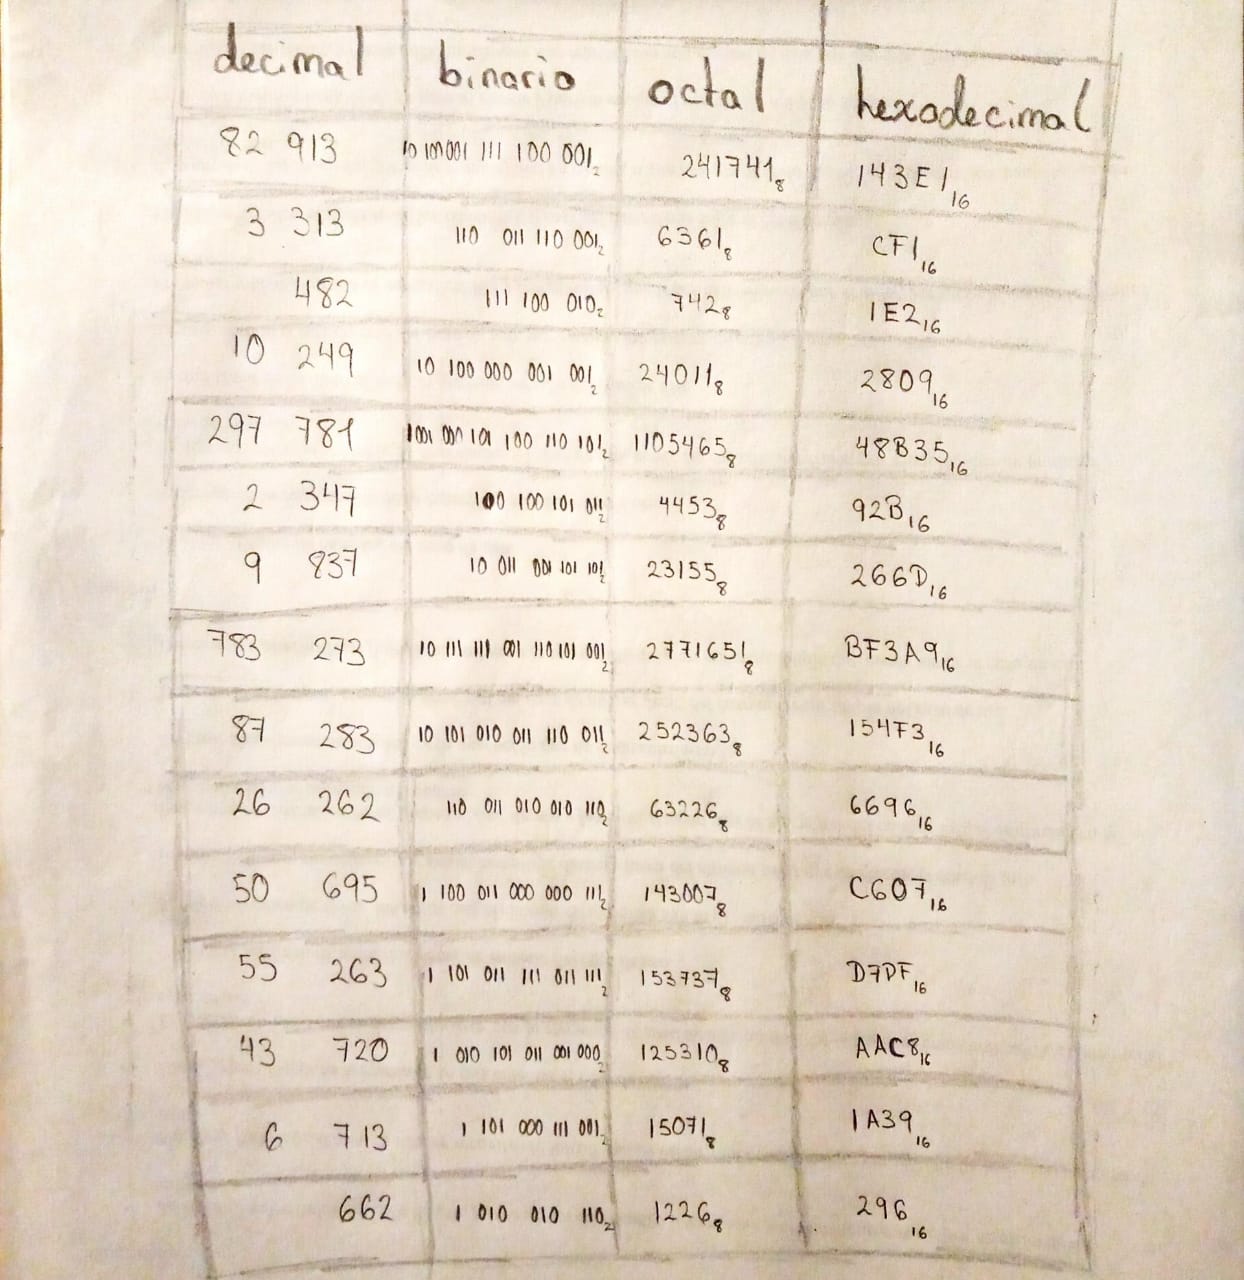 decimal binario octal hexadecimal
82 913 10 100 001 111 100 001₂ 241741₈ 143E1₁₆
3 313 110 011 110 001₂ 6361₈ CF1₁₆
482 111 100 010₂ 742₈ 1E2₁₆
10 249 10 100 000 001 001₂ 24011₈ 2809₁₆
297 781 1001 000 101 100 110 101₂ 1105465₈ 48B35₁₆
2 347 100 100 101 011₂ 4453₈ 92B₁₆
9 837 10 011 001 101 101₂ 23155₈ 266D₁₆
783 273 10 111 111 001 110 101 001₂ 2771651₈ BF3A9₁₆
87 283 10 101 010 011 110 011₂ 252363₈ 154F3₁₆
26 262 110 011 010 010 110₂ 63226₈ 6696₁₆
50 695 1 100 011 000 000 111₂ 143007₈ C607₁₆
55 263 1 101 011 111 011 111₂ 153737₈ D7DF₁₆
43 720 1 010 101 011 001 000₂ 125310₈ AAC8₁₆
6 713 1 101 000 111 001₂ 15071₈ 1A39₁₆
662 1 010 010 110₂ 1226₈ 296₁₆